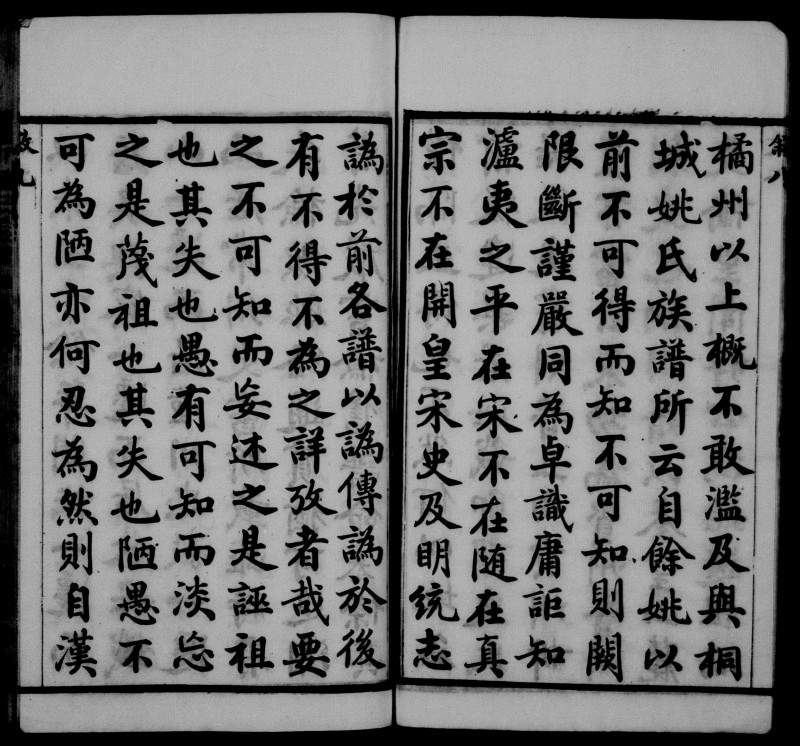 敘八
橘州以上概不敢濫及與桐
城姚氏族譜所云自餘姚以
前不可得而知不可知則闕
限斷謹嚴同為卓識庸詎知
瀘夷之平在宋不在隨在真
宗不在開皇宋史及明統志
譌於前各譜以譌傳譌於後
有不得不為之詳攷者哉要
之不可知而妄述之是誣祖
也其失也愚有可知而淡忘
之是蔑祖也其失也陋愚不
可為陋亦何忍為然則自漢
敘九